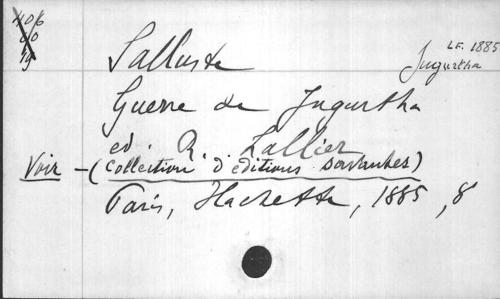 406
L.F. 1885
Salluste
Jugurtha
Guerre de Jugurtha
ed. R. Lallier
Voir - (Collection d'editions savantes)
Paris, Hachette, 1885, 8°